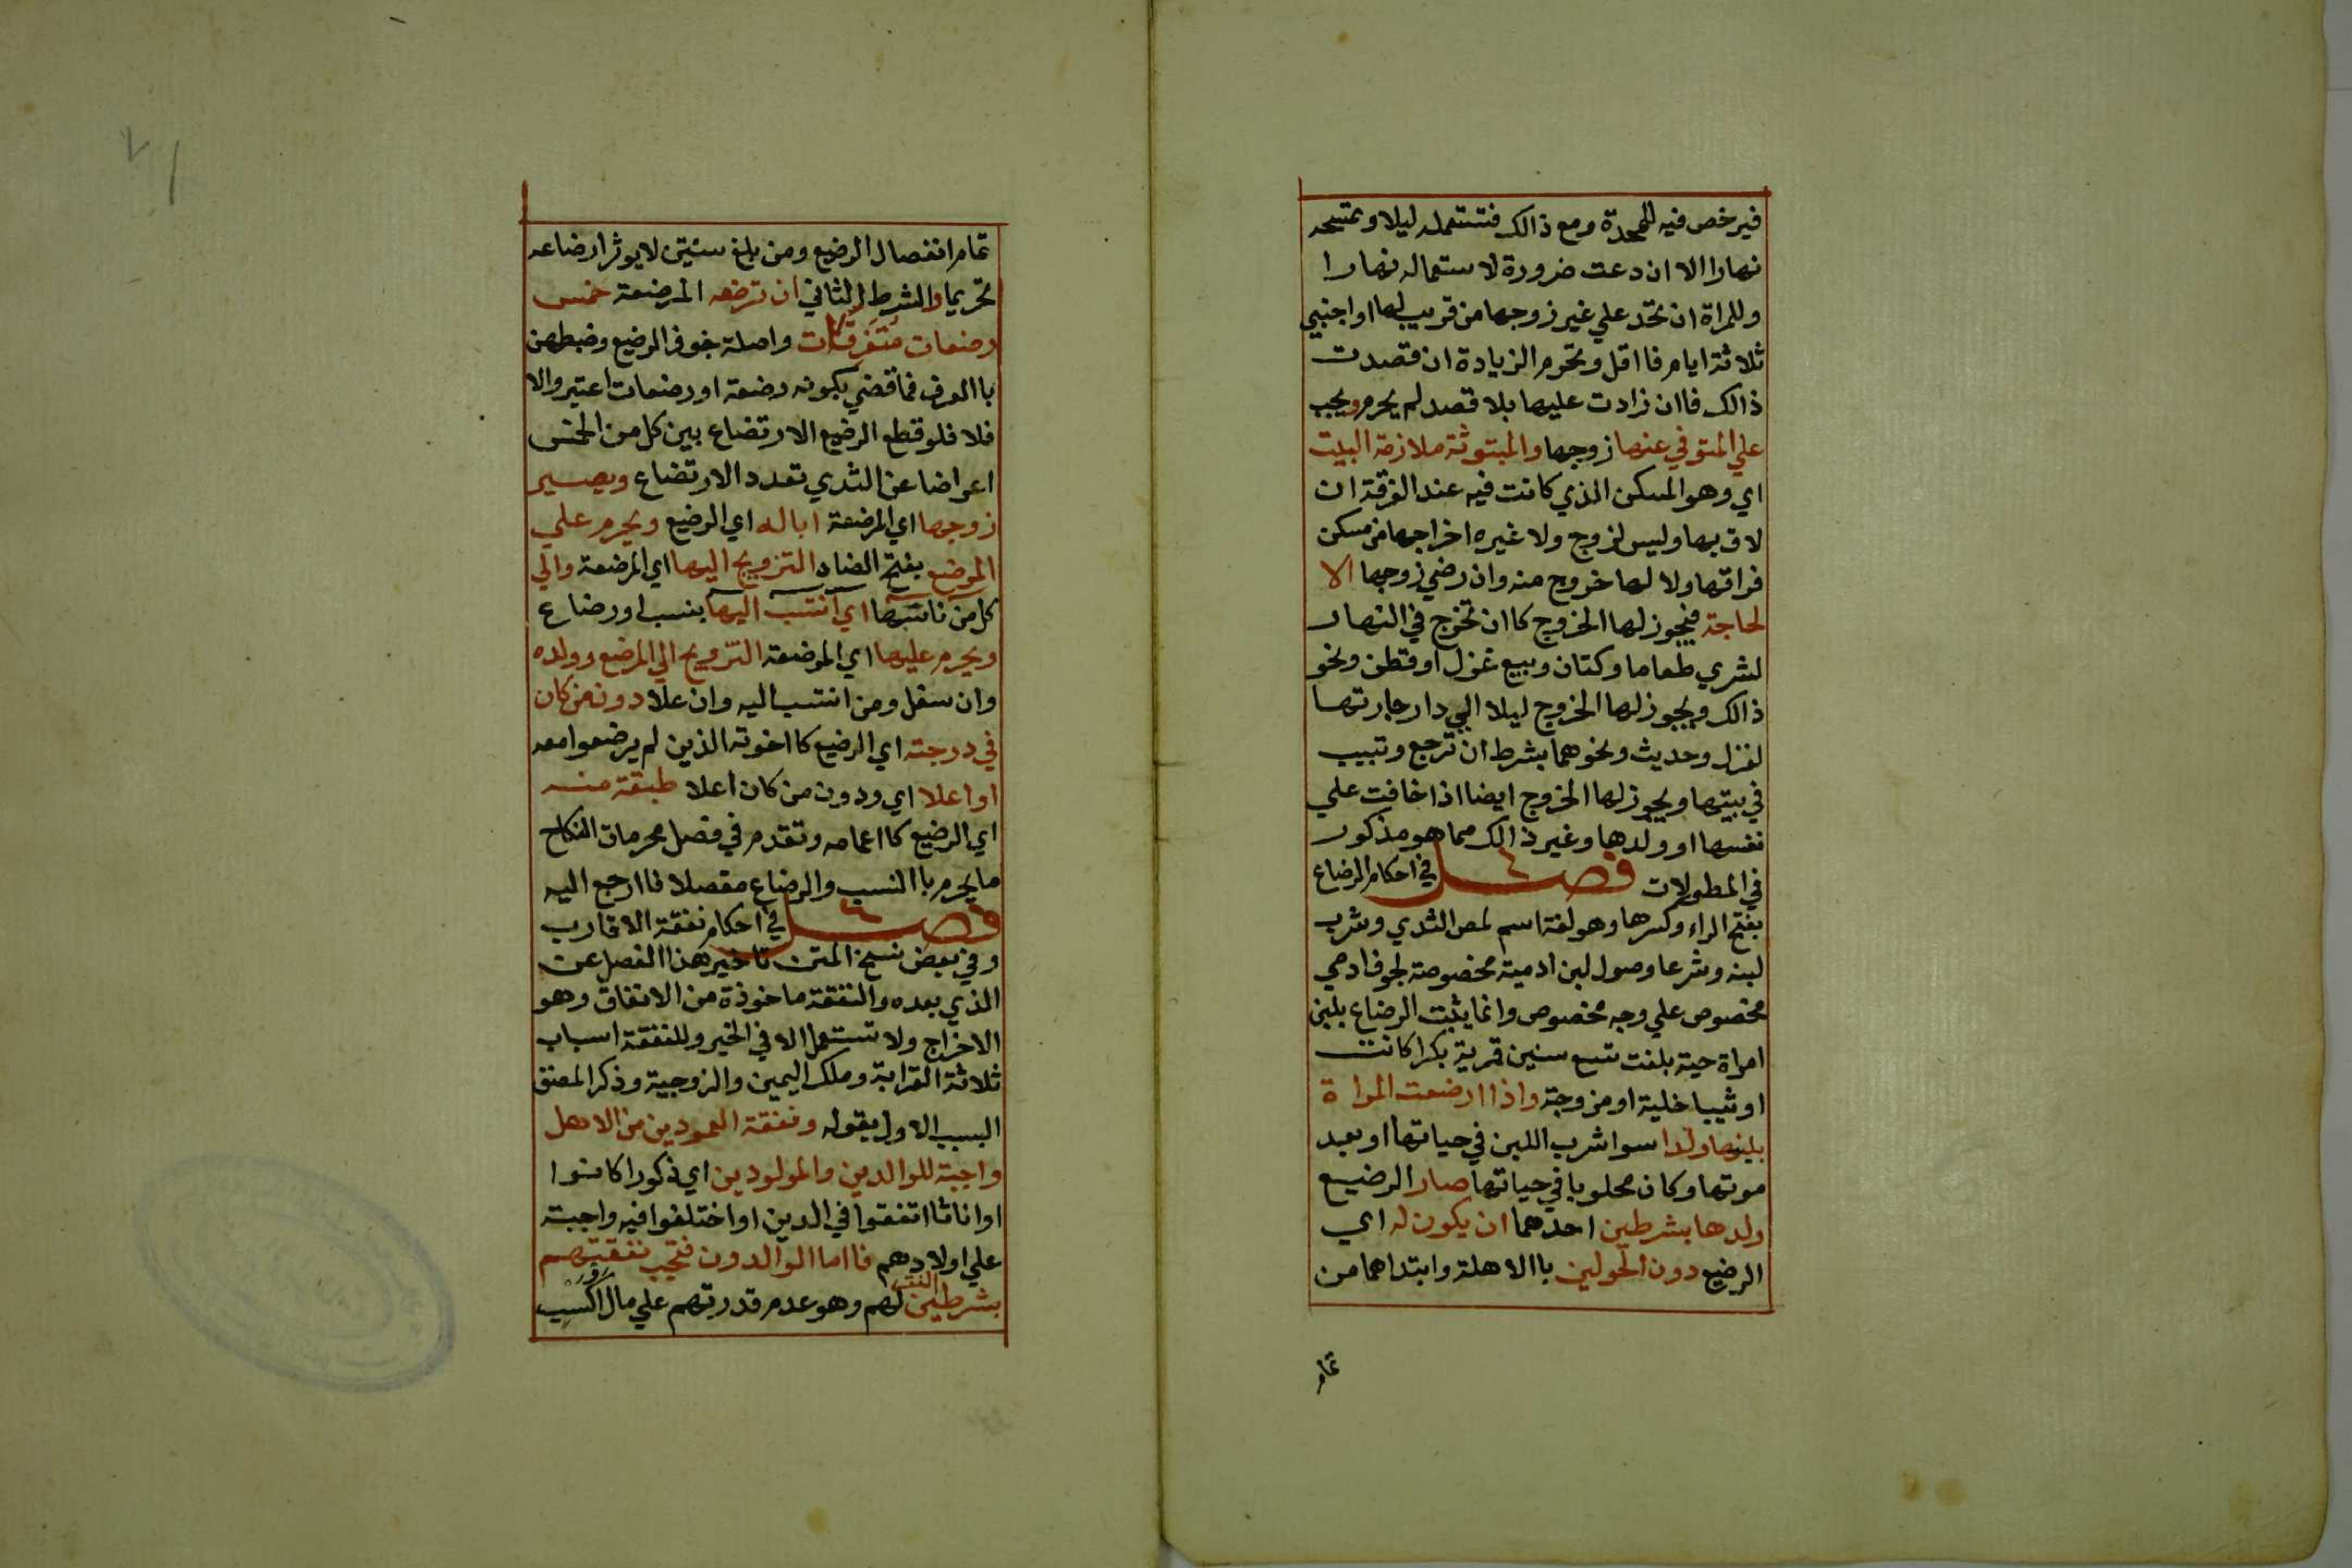 فيرخص فيه للمحدة ومع ذالك فتستعمله ليلا وتمسحه
نهارا الا ان دعت ضرورة لاستعماله نهارا
وللمراة ان تحد علي غير زوجها من قريب لها او اجنبي
ثلاثة ايام فااقل وتحرم الزيادة ان قصدت
ذالك فاان زادت عليها بلا قصد لم يحرم ويجب
علي المتوفي عنها زوجها والمبتوثة ملازمة البيت
اي وهو المسكن الذي كانت فيه عند الفرقة ان
لاق بها وليس لزوج ولا غيره اخراجها من مسكن
فراقها ولا لها خروج منه وان رضي زوجها الا
لحاجة فيجوز لها الخروج كاان تخرج في النهار
لشري طعاما وكتان وبيع غزل او قطن ونحو
ذالك ويجوز لها الخروج ليلا الي دار جارتها
لغزل وحديث ونحوهما بشرط ان ترجع وتبيب
في بيتها ويجوز لها الخروج ايضا اذا خافت علي
نفسها او ولدها وغير ذالك مما هو مذكور
في المطولات فصل في احكام الرضاع
بفتح الراء وكسرها وهو لغة اسم لمص الثدي وشرب
لبنه وشرعا وصول لبن ادمية مخصوصة لجوف ادمي
مخصوص علي وجه مخصوص وانما يثبت الرضاع بلبن
امراة حية بلغت تسع سنين قمرية بكرا كانت
او ثيبا خلية او مزوجة واذا ارضعت المراة
بلبنها ولدا سوا شرب اللبن في حياتها او بعد
موتها وكان محلوبا في حياتها صار الرضيع
ولدها بشرطين احدهما ان يكون له اي
الرضيع دون الحولين باالاهلة وابتداهما من
تمام
تمام انفصال الرضيع ومن بلغ سنتين لا يوثر ارضاعه
تحريما والشرط الثاني ان ترضعه المرضعة خمس
رضعات متفرقات واصلة جوف الرضيع وضبطهن
باالعرف فما قضي بكونه رضعة او رضعات اعتبر والا
فلا فلو قطع الرضيع الارتضاع بين كل من الخمس
اعراضا عن الثدي تعدد الارتضاع ويصير
زوجها اي المرضعة ابا له اي الرضيع ويحرم علي
المرضع بفتح الضاد التزويج اليها اي المرضعة والي
كل من ناسبها اي انتسب اليها بنسب او رضاع
ويحرم عليها اي المرضعة التزويج الي المرضع وولده
وان سفل ومن انتسب اليه وان علا دون من كان
في درجته اي الرضيع كااخوته الذين لم يرضعوا معه
او اعلا اي ودون من كان اعلا طبقة منه
اي الرضيع كااعمامه وتقدم في فصل محرمات النكاح
ما يحرم باالنسب والرضاع مفصلا فاارجع اليه
فصل في احكام نفقة الاقارب
وفي بعض نسخ المتن تاخير هذا الفصل عن
الذي بعده والنفقة ماخوذة من الانفاق وهو
الاخراج ولا تستعمل الا في الخير وللنفقة اسباب
ثلاثة القرابة وملك اليمين والزوجية وذكر المصنف
السبب الاول بقوله ونفقة العمودين من الاهل
واجبة للوالدين والمولودين اي ذكورا كانوا
او اناثا اتفقوا في الدين او اختلفوا فيه واجبة
علي اولادهم فااما الوالدون فتجب نفقتهم
بشرطين لهم وهو عدم قدرتهم علي مال اكسب